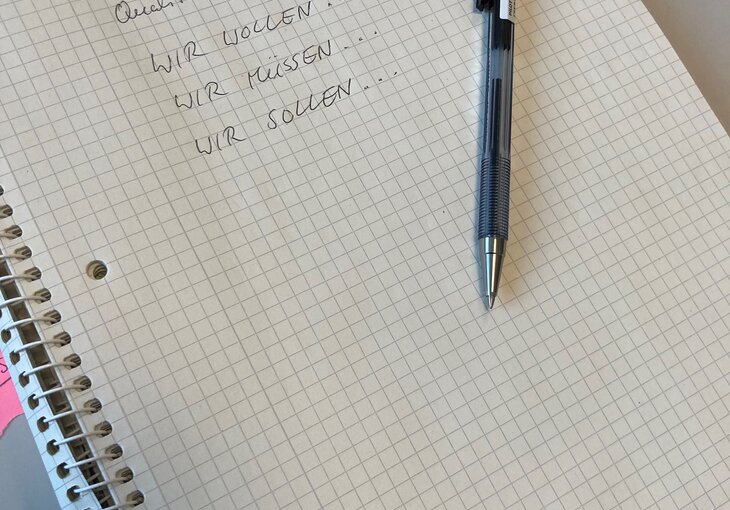 WIR WOLLEN..
WIR MÜSSEN...
WIR SOLLEN...